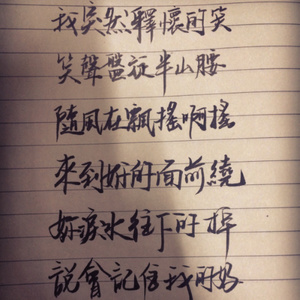 我突然釋懷的笑
笑聲盤延半山腰
隨風在飄搖啊搖
來到妳的面前繞
妳淚水往下的掉
說會記住我的好